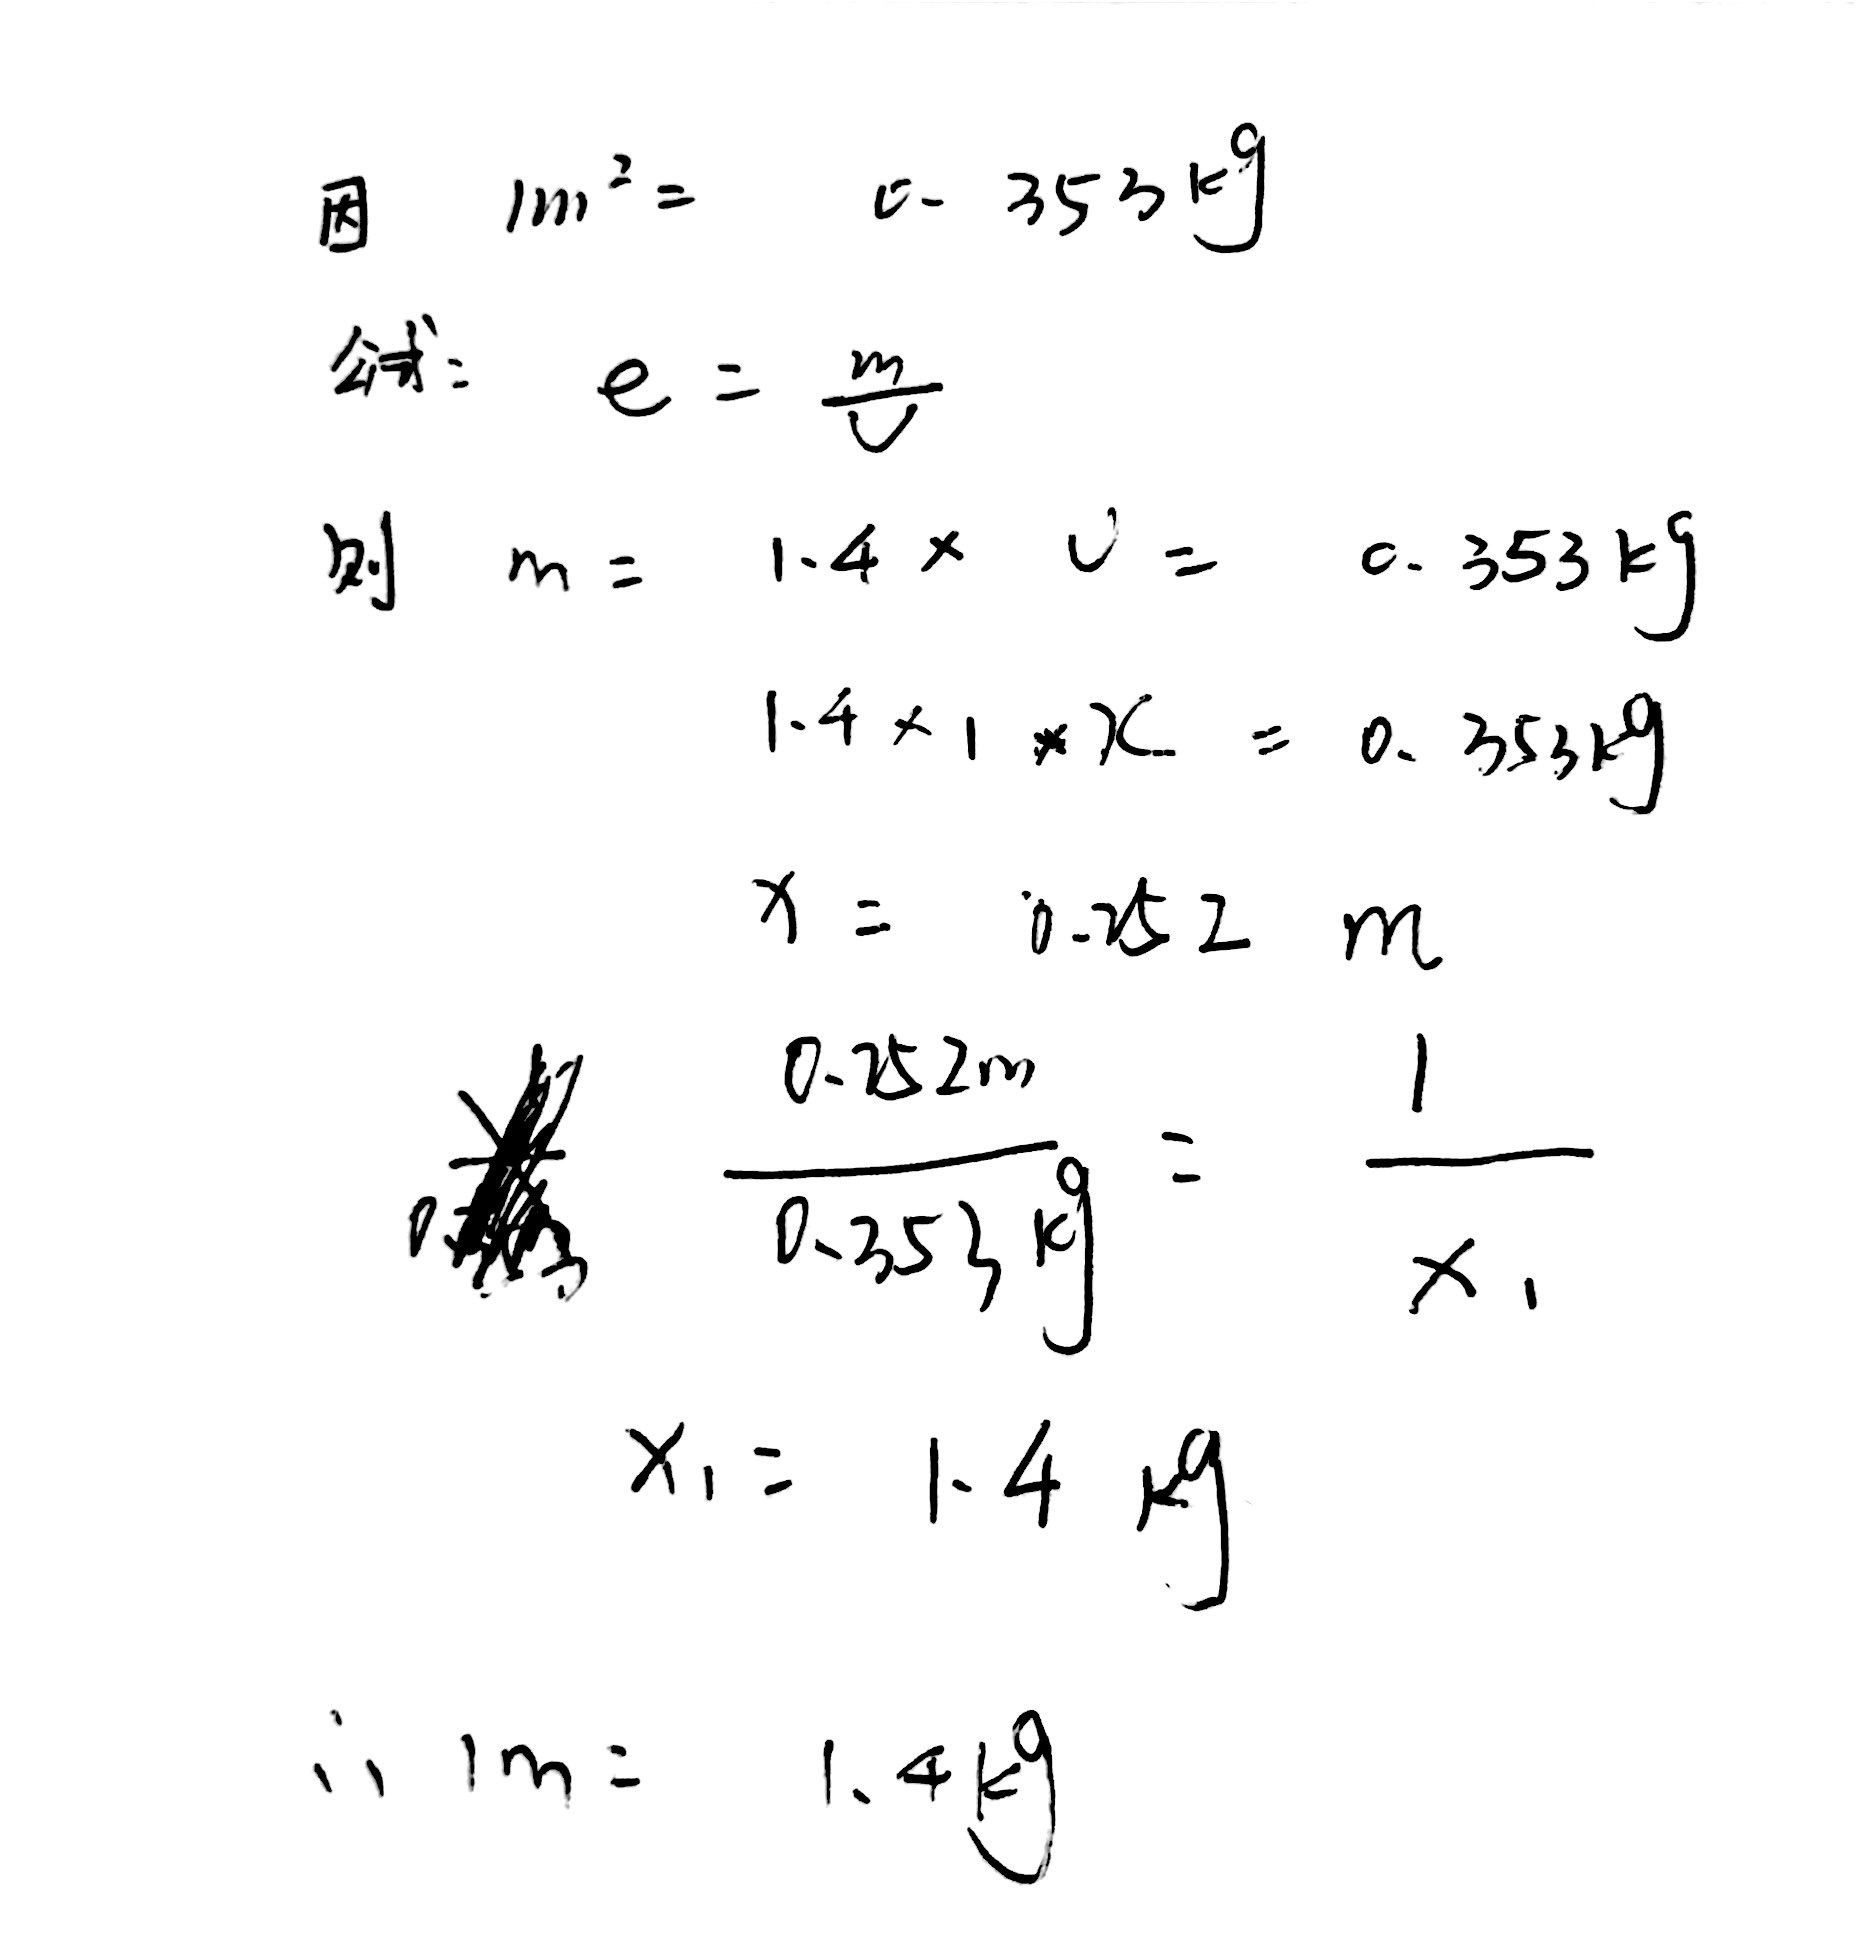 因 1m²= 0.353kg
公式: e = m/v
则 m = 1.4 × v = 0.353kg
1.4 × 1 * x = 0.353kg
x = 0.252 m
0.252m/0.353kg = 1/x₁
x₁ = 1.4 kg
∴ 1m = 1.4kg